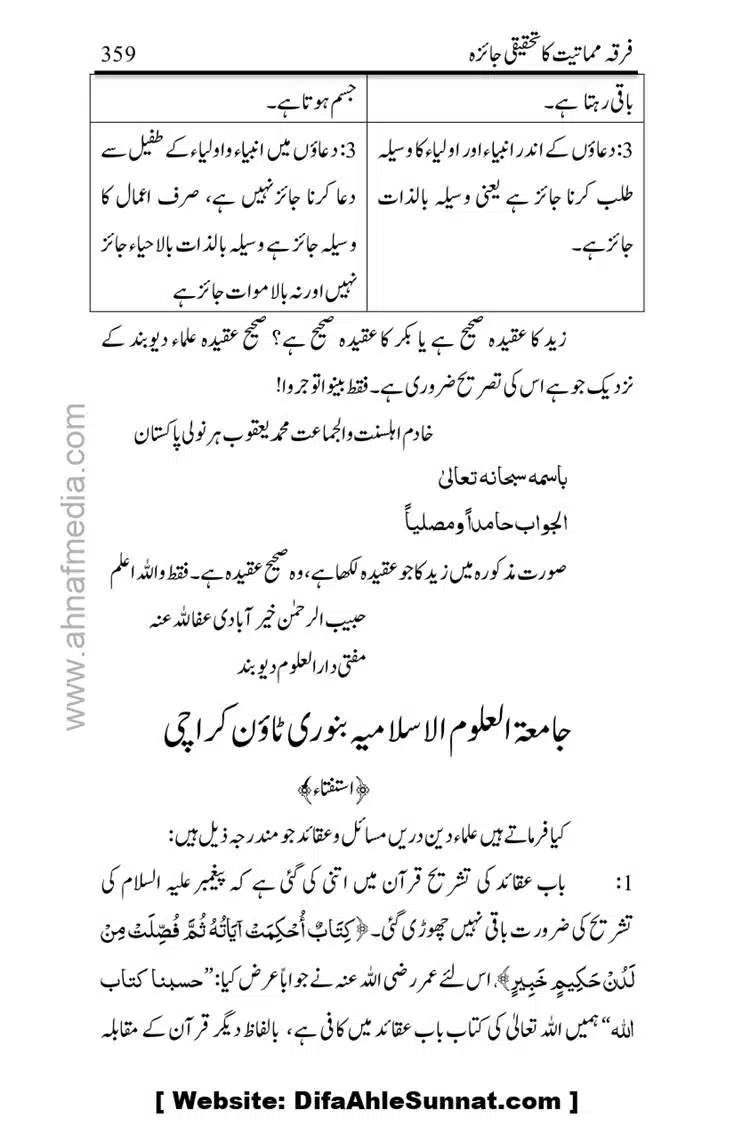 فرقہ مماتیت کا تحقیقی جائزہ 359
باقی رہتا ہے۔
جسم ہوتا ہے۔
3: دعاؤں کے اندر انبیاء اور اولیاء کا وسیلہ
طلب کرنا جائز ہے یعنی وسیلہ بالذات
جائز ہے۔
3: دعاؤں میں انبیاء و اولیاء کے طفیل سے
دعا کرنا جائز نہیں ہے، صرف اعمال کا
وسیلہ جائز ہے وسیلہ بالذات بالاحیاء جائز
نہیں اور نہ بالاموات جائز ہے
زید کا عقیدہ صحیح ہے یا بکر کا عقیدہ صحیح ہے؟ صحیح عقیدہ علماء دیوبند کے
نزدیک جو ہے اس کی تصریح ضروری ہے۔ فقط بینوا توجروا!
خادم اہلسنت والجماعت محمد یعقوب ہرنولی پاکستان
باسمہ سبحانہ تعالیٰ
الجواب حامداً و مصلیاً
صورت مذکورہ میں زید کا جو عقیدہ لکھا ہے، وہ صحیح عقیدہ ہے۔ فقط واللہ اعلم
حبیب الرحمٰن خیر آبادی عفا اللہ عنہ
مفتی دار العلوم دیوبند
جامعۃ العلوم الاسلامیہ بنوری ٹاؤن کراچی
﴿استفتاء﴾
کیا فرماتے ہیں علماء دین دریں مسائل و عقائد جو مندرجہ ذیل ہیں:
1: باب عقائد کی تشریح قرآن میں اتنی کی گئی ہے کہ پیغمبر علیہ السلام کی
تشریح کی ضرورت باقی نہیں چھوڑی گئی۔ ﴿كِتَابٌ أُحْكِمَتْ آيَاتُهُ ثُمَّ فُصِّلَتْ مِنْ
لَدُنْ حَكِيمٍ خَبِيرٍ﴾، اس لئے عمر رضی اللہ عنہ نے جواباً عرض کیا: ”حسبنا کتاب
اللہ“ ہمیں اللہ تعالیٰ کی کتاب باب عقائد میں کافی ہے، بالفاظ دیگر قرآن کے مقابلہ
www.ahnafmedia.com
[ Website: DifaAhleSunnat.com ]